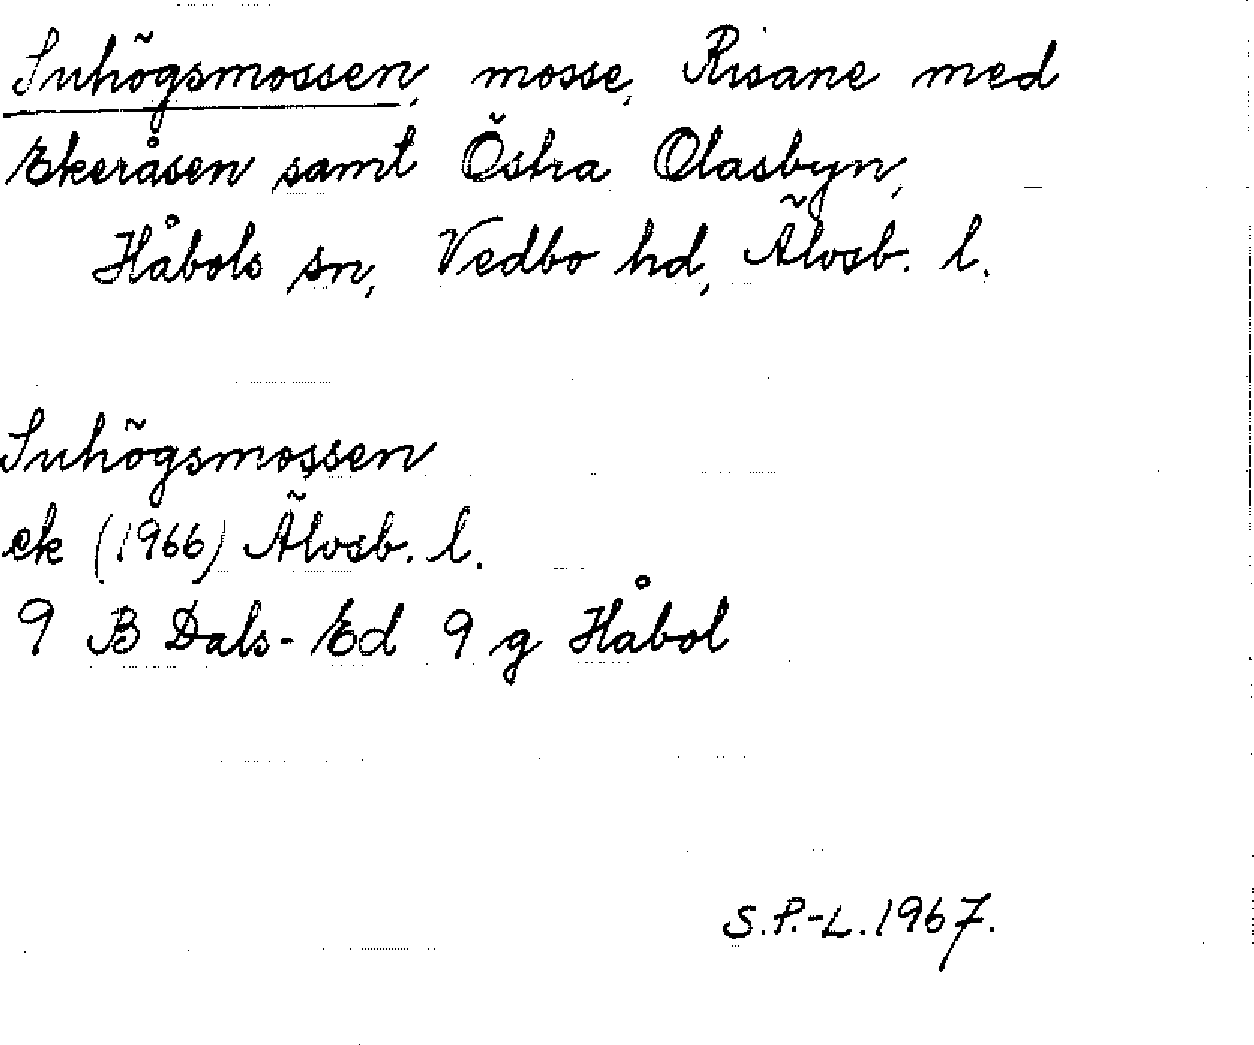 Suhögsmossen, mosse, Risane med
Ekeråsen samt Östra Olasbyn,
Håbols sn, Vedbo hd, Älvsb. l.
Suhögsmossen
ek (1966) Älvsb. l.
9 B Dals-Ed 9 g Håbol
S.P.-L. 1967.